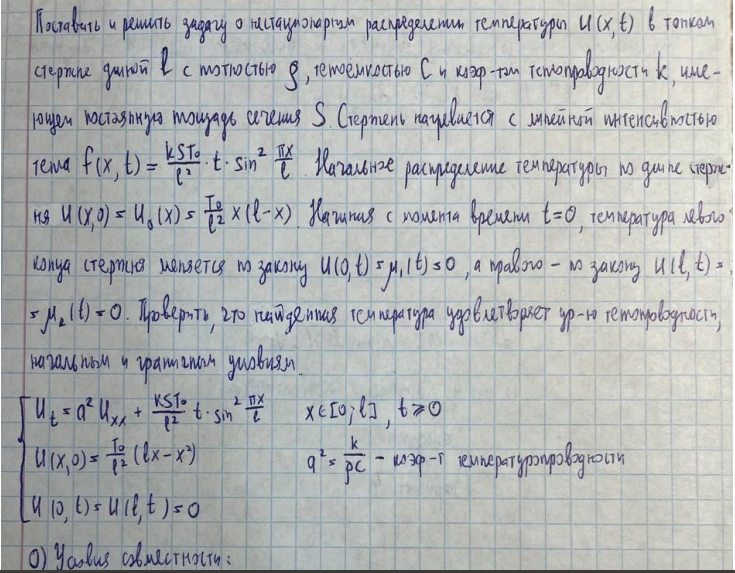 Поставить и решить задачу о нестационарном распределении температуры U(x,t) в тонком
стержне длиной l с плотностью ρ, теплоёмкостью C и коэф-том теплопроводности k, име-
ющем постоянную площадь сечения S. Стержень нагревается с линейной интенсивностью
тепла f(x,t) = kST₀/l² · t · sin² πx/l. Начальное распределение температуры по длине стерж-
ня U(x,0) = U₀(x) = T₀/l² x(l-x). Начиная с момента времени t=0, температура левого
конца стержня меняется по закону U(0,t) = μ₁(t) = 0, а правого - по закону U(l,t) =
= μ₂(t) = 0. Проверить, что найденная температура удовлетворяет ур-ю теплопроводности,
начальным и граничным условиям.
U_t = a² U_xx + kST₀/l² t · sin² πx/l x∈[0;l], t ≥ 0
U(x,0) = T₀/l² (lx-x²) a² = k/ρC - коэф-т температуропроводности
U(0,t) = U(l,t) = 0
0) Условия совместности: